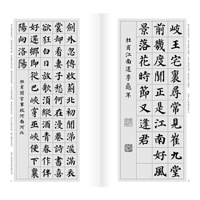 岐王宅裏尋常見崔九堂
前幾度聞正是江南好風
景落花時節又逢君
杜甫江南逢李龜年
劍外忽傳收薊北初聞涕淚滿衣
裳卻看妻子愁何在漫卷詩書喜
欲狂白日放歌須縱酒青春作伴
好還鄉即從巴峽穿巫峽便下襄
陽向洛陽
杜甫聞官軍收河南河北